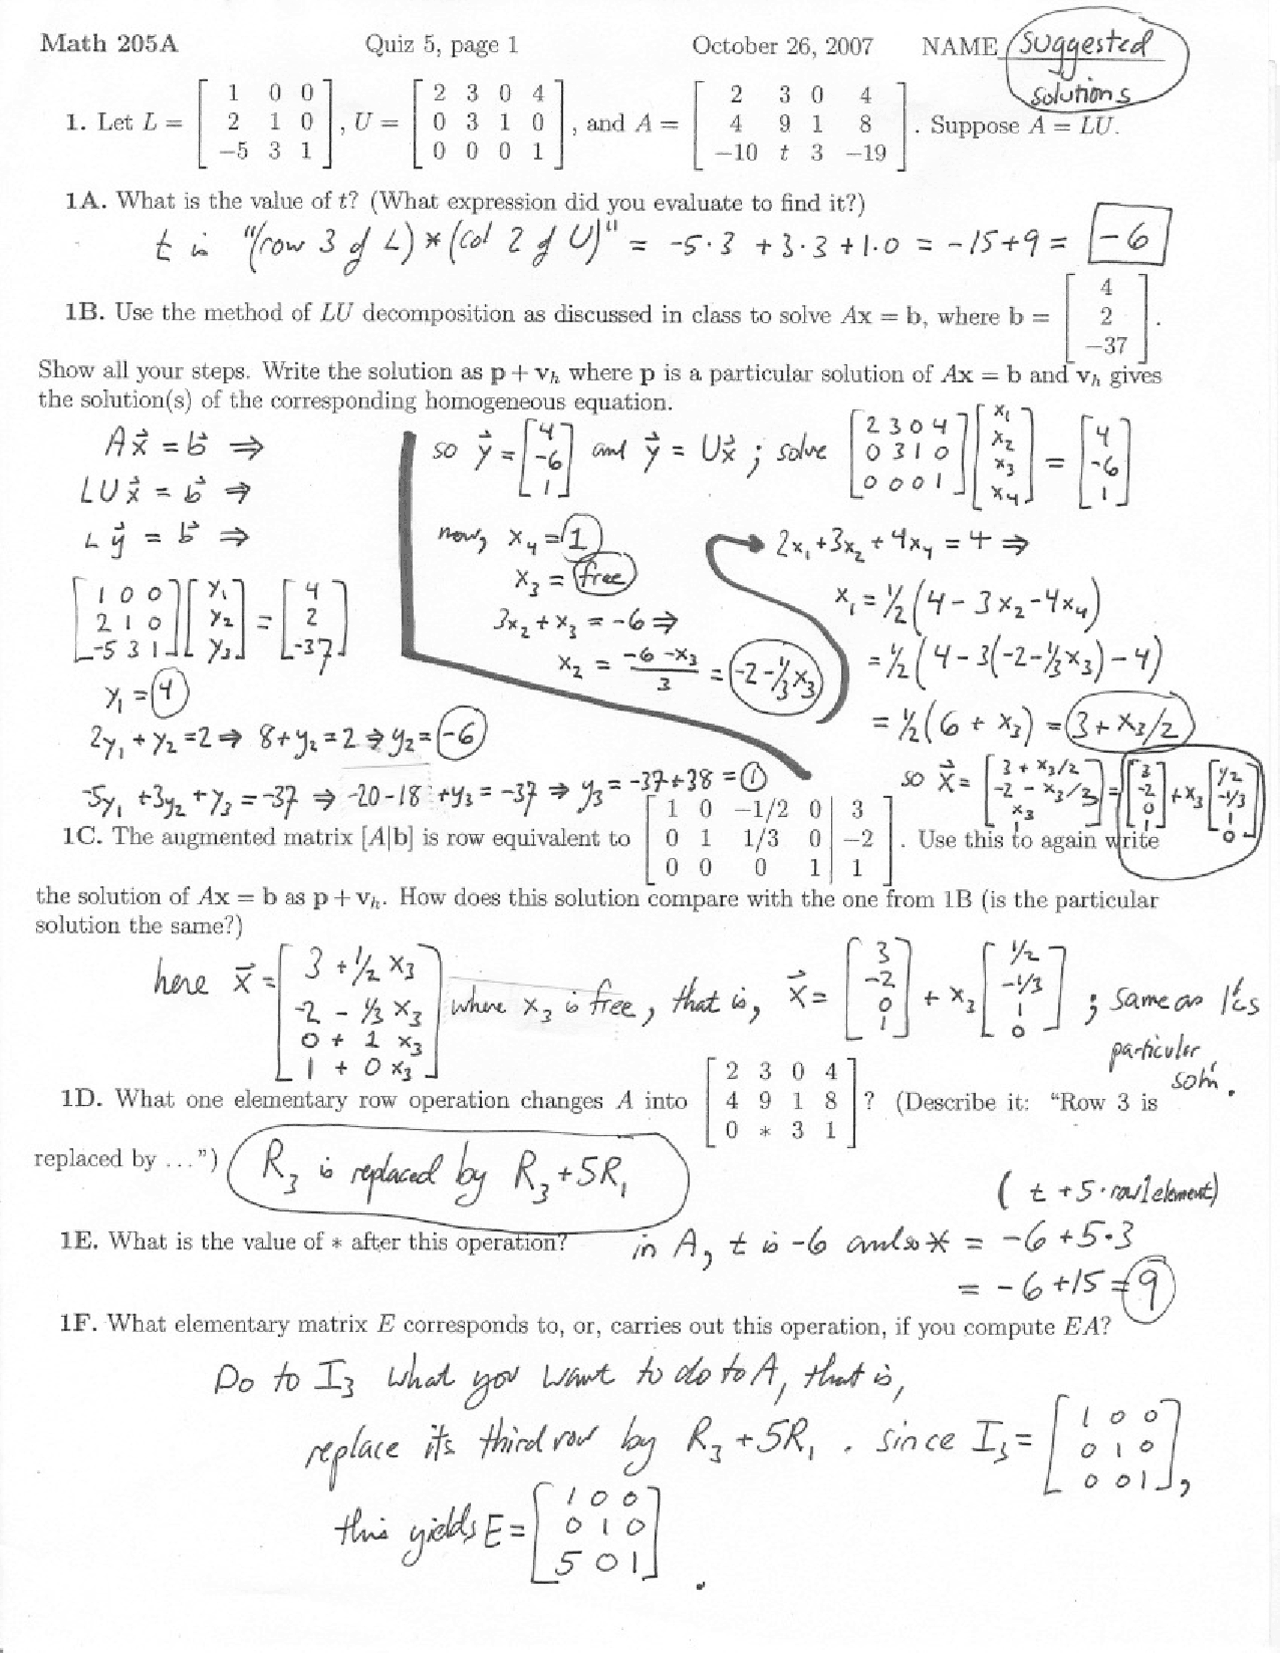 Math 205A Quiz 5, page 1 October 26, 2007 NAME suggested solutions
1. Let L = [1 0 0; 2 1 0; -5 3 1], U = [2 3 0 4; 0 3 1 0; 0 0 0 1], and A = [2 3 0 4; 4 9 1 8; -10 t 3 -19]. Suppose A = LU.
1A. What is the value of t? (What expression did you evaluate to find it?)
t is "(row 3 of L) * (col 2 of U)" = -5·3 + 3·3 + 1·0 = -15+9 = -6
1B. Use the method of LU decomposition as discussed in class to solve Ax = b, where b = [4; 2; -37].
Show all your steps. Write the solution as p + vₕ where p is a particular solution of Ax = b and vₕ gives
the solution(s) of the corresponding homogeneous equation.
Ax⃗ = b⃗ ⇒
LUx⃗ = b⃗ ⇒
Ly⃗ = b⃗ ⇒
[1 0 0; 2 1 0; -5 3 1] [y₁; y₂; y₃] = [4; 2; -37]
y₁ = 4
2y₁ + y₂ = 2 ⇒ 8 + y₂ = 2 ⇒ y₂ = -6
-5y₁ + 3y₂ + y₃ = -37 ⇒ -20 -18 + y₃ = -37 ⇒ y₃ = -37+38 = 1
so y⃗ = [4; -6; 1] and y⃗ = Ux⃗ ; solve [2 3 0 4; 0 3 1 0; 0 0 0 1] [x₁; x₂; x₃; x₄] = [4; -6; 1]
now, x₄ = 1
x₃ = free
3x₂ + x₃ = -6 ⇒
x₂ = (-6 - x₃)/3 = -2 - ⅓x₃
2x₁ + 3x₂ + 4x₄ = 4 ⇒
x₁ = ½(4 - 3x₂ - 4x₄)
= ½(4 - 3(-2 - ⅓x₃) - 4)
= ½(6 + x₃) = 3 + x₃/2
so x⃗ = [3 + x₃/2; -2 - x₃/3; x₃; 1] = [3; -2; 0; 1] + x₃ [1/2; -1/3; 1; 0]
1C. The augmented matrix [A|b] is row equivalent to [1 0 -1/2 0 | 3; 0 1 1/3 0 | -2; 0 0 0 1 | 1]. Use this to again write
the solution of Ax = b as p + vₕ. How does this solution compare with the one from 1B (is the particular
solution the same?)
here x⃗ = [3 + ½ x₃; -2 - ⅓ x₃; 0 + 1 x₃; 1 + 0 x₃] where x₃ is free, that is, x⃗ = [3; -2; 0; 1] + x₃ [1/2; -1/3; 1; 0] ; same as
particular
soln.
1D. What one elementary row operation changes A into [2 3 0 4; 4 9 1 8; 0 * 3 1]? (Describe it: "Row 3 is
replaced by ...")
R₃ is replaced by R₃ + 5R₁
(t + 5·row 1 element)
1E. What is the value of * after this operation? in A, t is -6 and so * = -6 + 5·3
= -6 + 15 = 9
1F. What elementary matrix E corresponds to, or, carries out this operation, if you compute EA?
Do to I₃ what you want to do to A, that is,
replace its third row by R₃ + 5R₁. since I₃ = [1 0 0; 0 1 0; 0 0 1],
this yields E = [1 0 0; 0 1 0; 5 0 1].